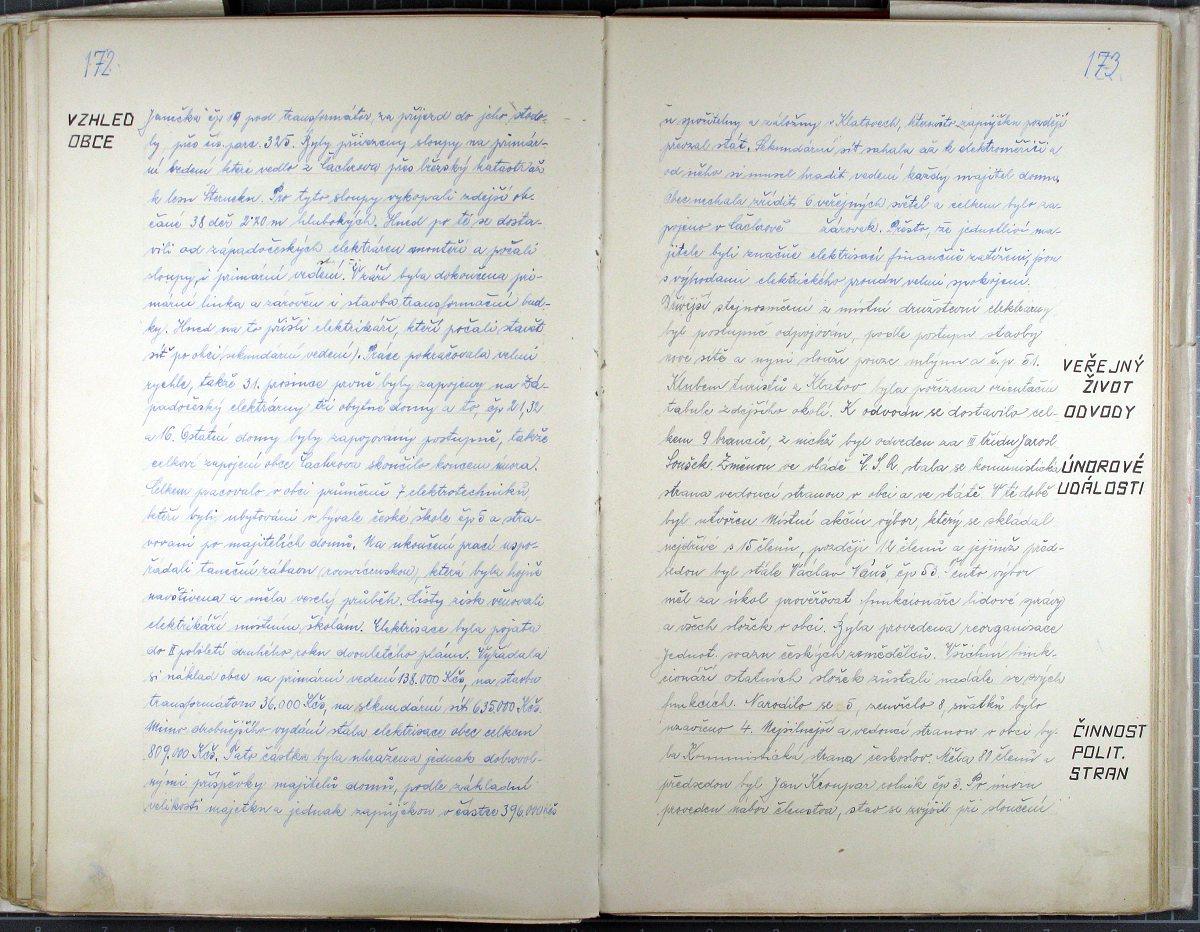 172
VZHLED
OBCE
Janečka čp 19 pod transformátor za příjezd do jeho stodo-
ly přes čís. parc. 325. Byly přivezeny sloupy na primár-
ní vedení které vedlo z Čachrova přes březský katastr až
k lesu Šterneku. Pro tyto sloupy vykopali zdejší ob-
čané 38 děr 2.20 m hlubokých. Hned po té se dosta-
vili od západočeských elektráren montéři a počali
sloupy i primární vedení. V září byla dokončena pri-
mární linka a zároveň i stavba transformační bud-
ky. Hned na to přišli elektrikáři, kteří počali stavět
síť po obci (sekundární vedení). Práce pokračovala velmi
rychle, takže 31. prosince prvně byly zapojeny na Zá-
padočeský elektrárny tři obytné domy a to, čp 21, 32
a 16. Ostatní domy byly zapojovány postupně, takže
celkové zapojení obce Čachrova skončilo koncem února.
Celkem pracovalo v obci průměrně 7 elektrotechniků
kteří byli ubytováni v bývalé české škole čp 5 a stra-
vováni po majitelích domů. Na ukončení prací uspo-
řádali taneční zábavu (rozsvícenskou), která byla hojně
navštívena a měla veselý průběh. Čistý zisk věnovali
elektrikáři místním školám. Elektrisace byla pojata
do II pololetí druhého roku dvouletého plánu. Vyžádala
si náklad obce na primární vedení 138.000 Kčs, na stavbu
transformátoru 36.000 Kčs, na sekundární síť 635.000 Kčs.
Mimo drobnějšího vydání stála elektrisace obec celkem
809.000 Kčs. Tato částka byla uhražena jednak dobrovol-
nými příspěvky majitelů domů, podle základní
velikosti majetku a jednak zápůjčkou v částce 396.000 Kčs
173
u spořitelny a záložny v Klatovech, kteroužto zápůjčku později
převzal stát. Sekundární síť sahala až k elektroměřiči a
od něho si musel hradit vedení každý majitel domu.
Obec nechala zříditi 6 veřejných světel a celkem bylo za-
pojeno v Čachrově žárovek. Přesto, že jednotliví ma-
jitelé byli značně elektrisací finančně zatíženi, jsou
s výhodami elektrického proudu velmi spokojeni.
Dřívější stejnosměrní z místní družstevní elektrárny
byl postupně odpojován, podle postupu stavby
nové sítě a nyní slouží pouze mlýnu a č.p. 51.
VEŘEJNÝ
ŽIVOT
Klubem turistů z Klatov byla pořízena orientační
tabule zdejšího okolí. K odvodu se dostavilo cel-
ODVODY
kem 9 branců, z nichž byl odveden za III třídu Jarosl.
Soušek. Změnou ve vládě Č.S.R. stala se komunistická
ÚNOROVÉ
UDÁLOSTI
strana vedoucí stranou v obci a ve státě. V té době
byl utvořen Místní akční výbor, který se skládal
nejdříve s 15 členů, později 12 členů a jejímž před-
sedou byl stále Václav Váňš čp 53. Tento výbor
měl za úkol prověřovat funkcionáře lidové správy
a všech složek v obci. Byla provedena reorganisace
Jednot. svazu českých zemědělců. Všichni funk-
cionáři ostatních složek zůstali nadále ve svých
funkcích. Narodilo se 5, zemřelo 8, sňatků bylo
uzavřeno 4. Nejsilnější a vedoucí stranou v obci by-
ČINNOST
POLIT.
STRAN
la Komunistická strana českoslov. Měla 80 členů a
předsedou byl Jan Kroupar rolník čp 3. Po únoru
proveden nábor členstva, stav se zvýšil při sloučení